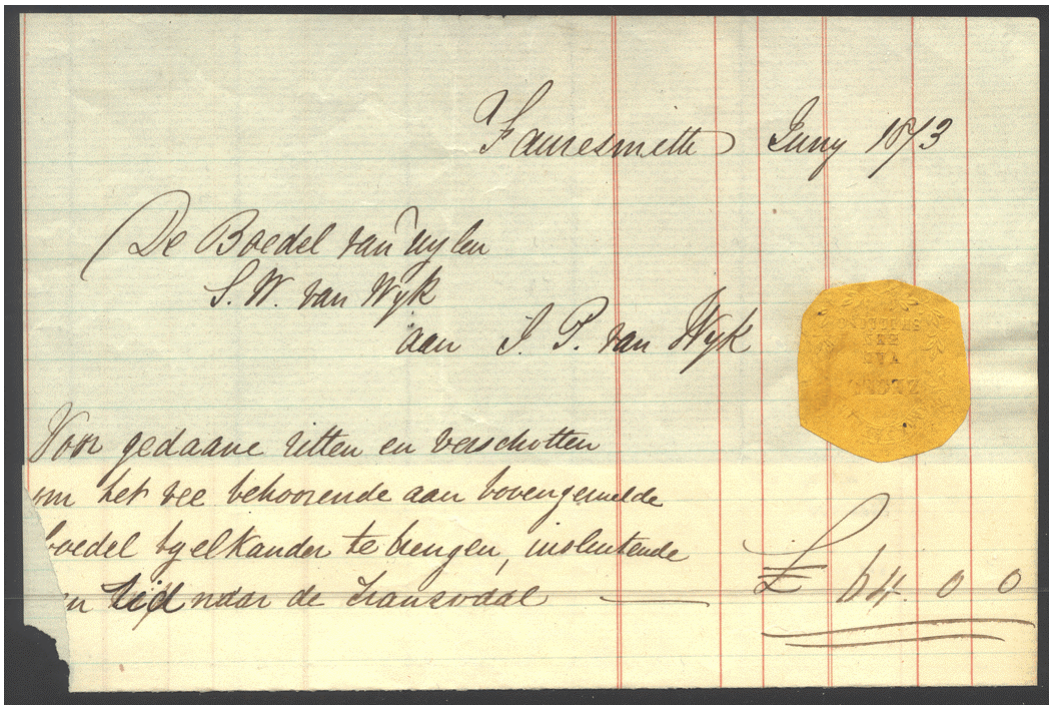 Fauresmith Juny 1873
De Boedel van wylen
S. W. van Wyk
aan J. P. van Wyk
Voor gedaane ritten en verschotten
om het vee behoorende aan bovengemelde
boedel byelkander te brengen, insluitende
en rid naar de Transvaal — £ 64. 0 0